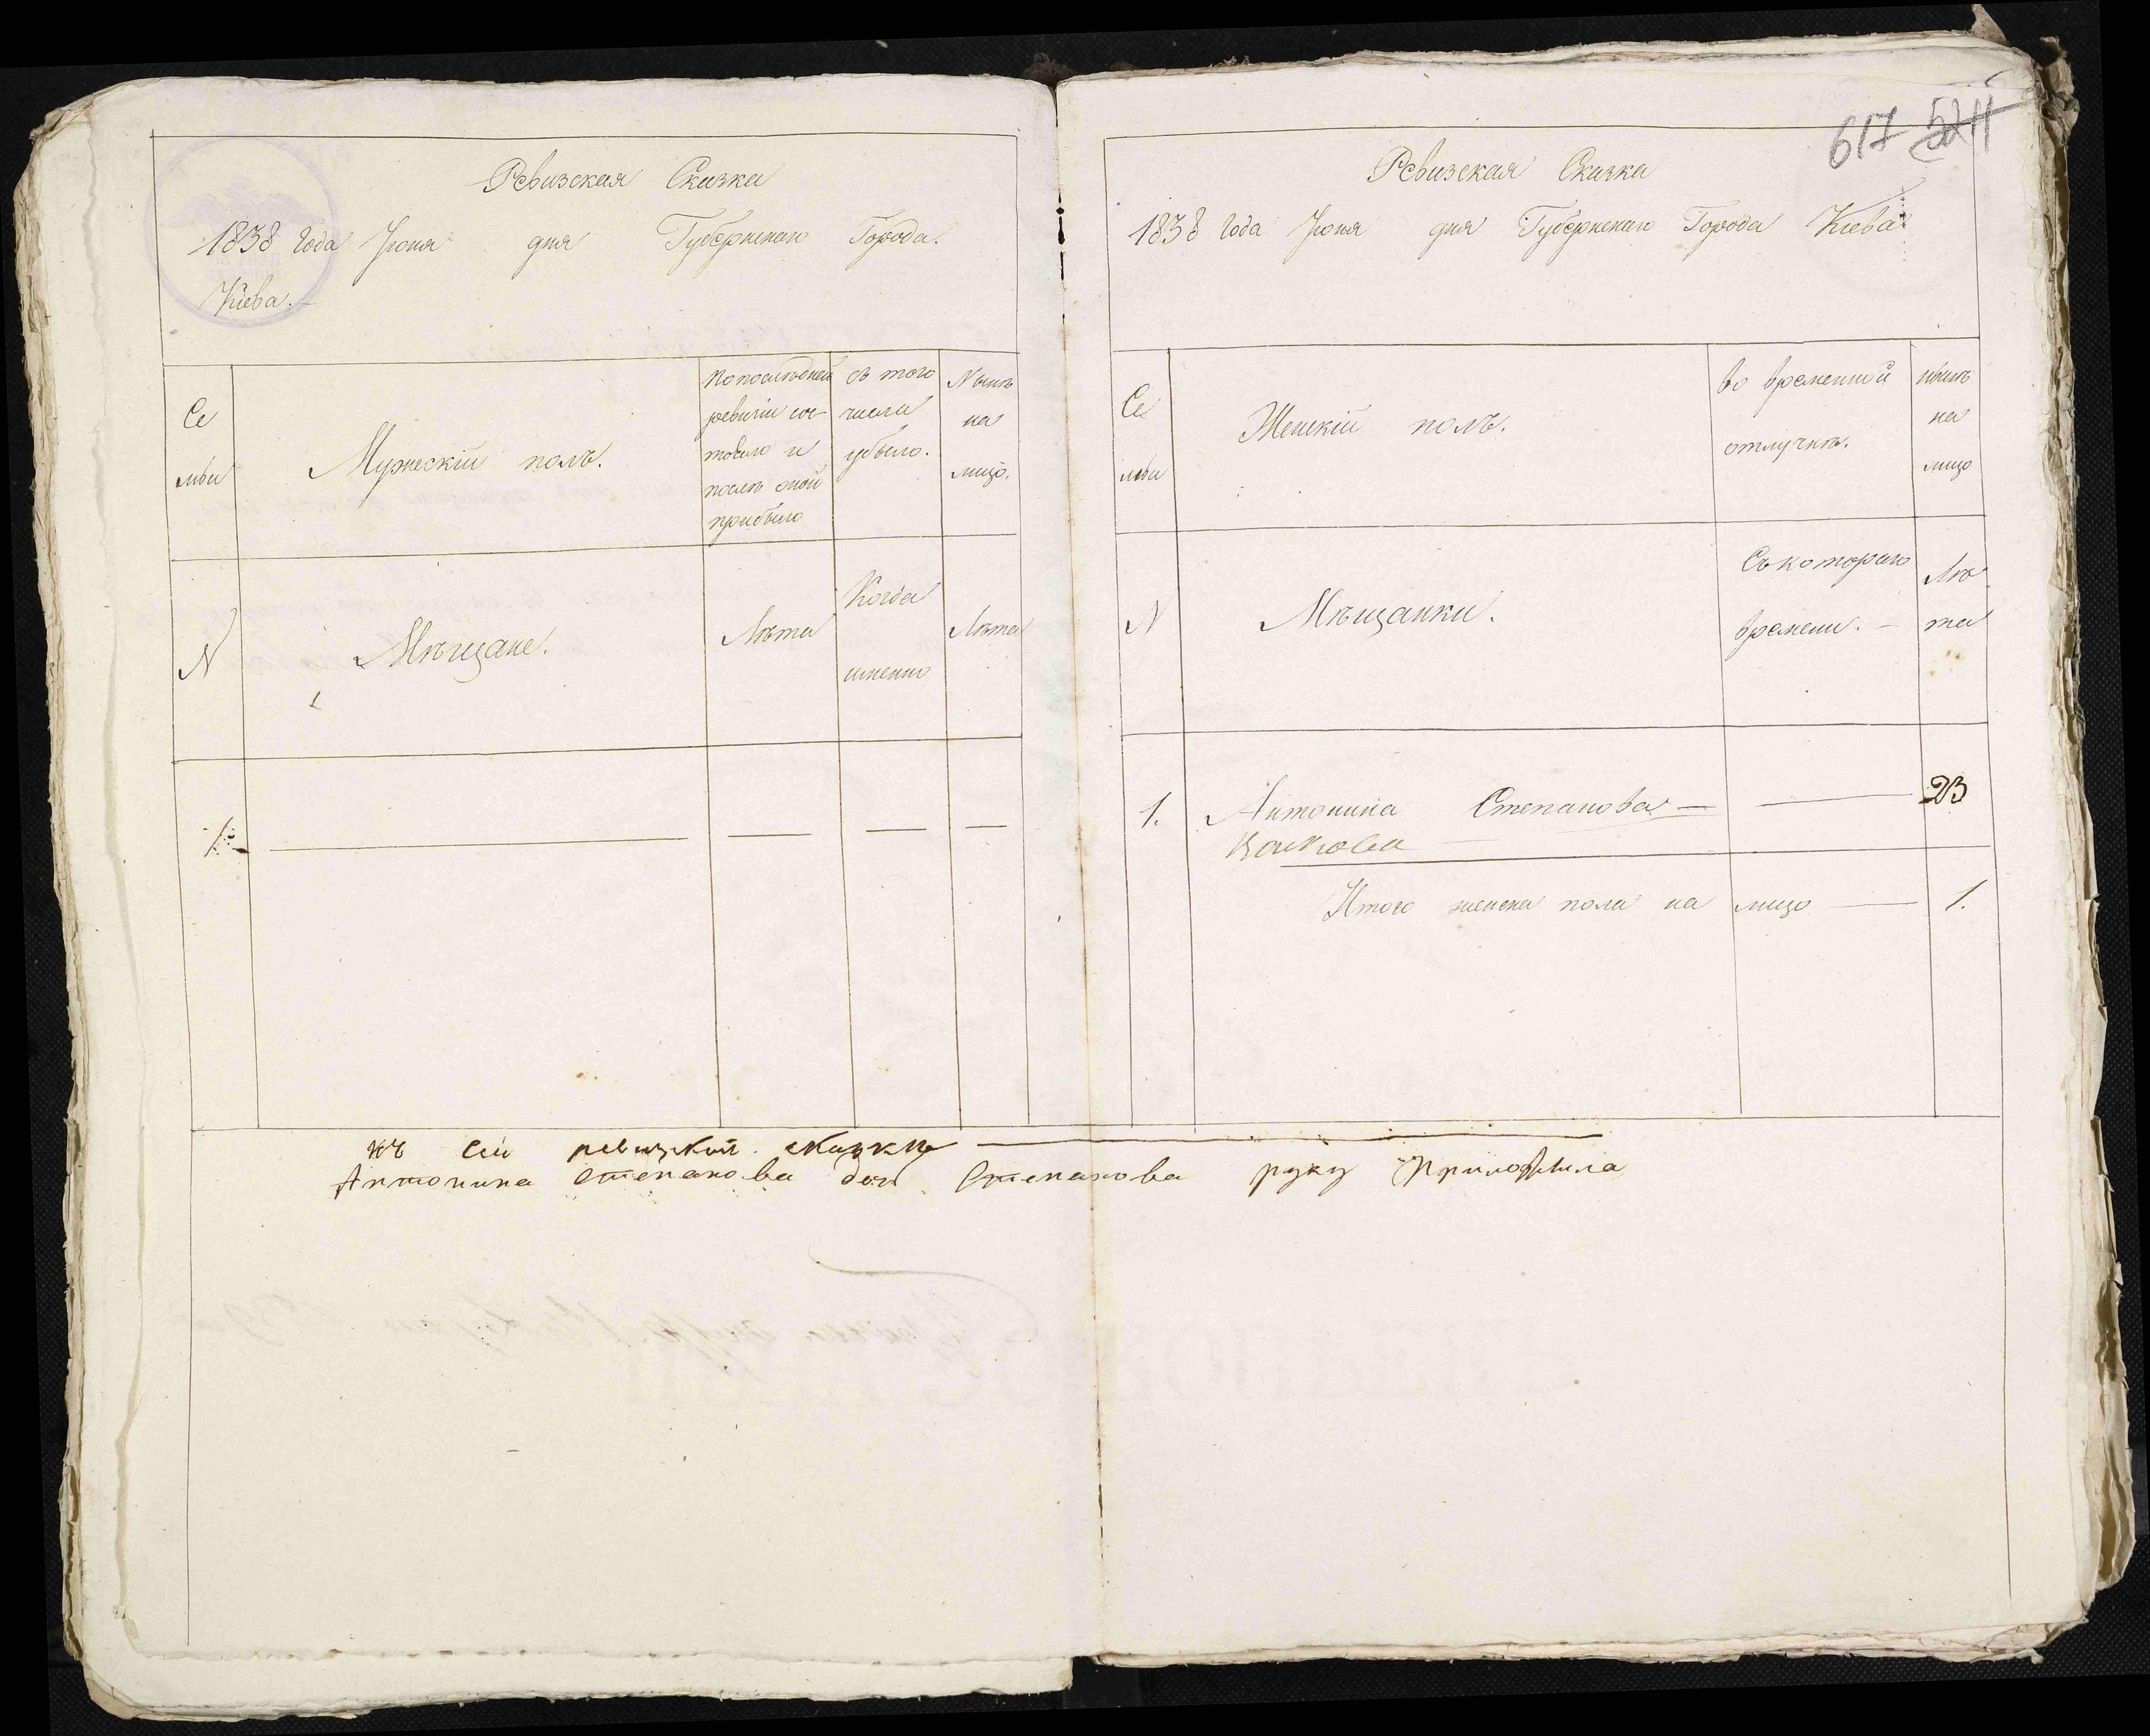 Ревизская Сказка
1838 Года Июня дня Губернскаго Города
Кіева.
Се
мьи
Мужескій полъ.
По последней
ревизіи сос
тояло и
послѣ оной
прибыло
съ того
числа
убыло.
Нынѣ
на
лицо.
N
Мѣщане.
Лѣта
Когда
именно
Лѣта
1.
617 5211
Ревизская Сказка
1838 Года Июня дня Губернскаго Города Кіева
Се
мьи
Женскій полъ.
во временной
отлучкѣ.
нынѣ
на
лицо
N
Мѣщанки.
Съ котораго
времени.
Лѣ
та
1. Антонина Степанова 23
Итого женска пола на лицо 1.
къ сей ревизкой сказкѣ
Антонина Степанова доч Степанова руку Приложила